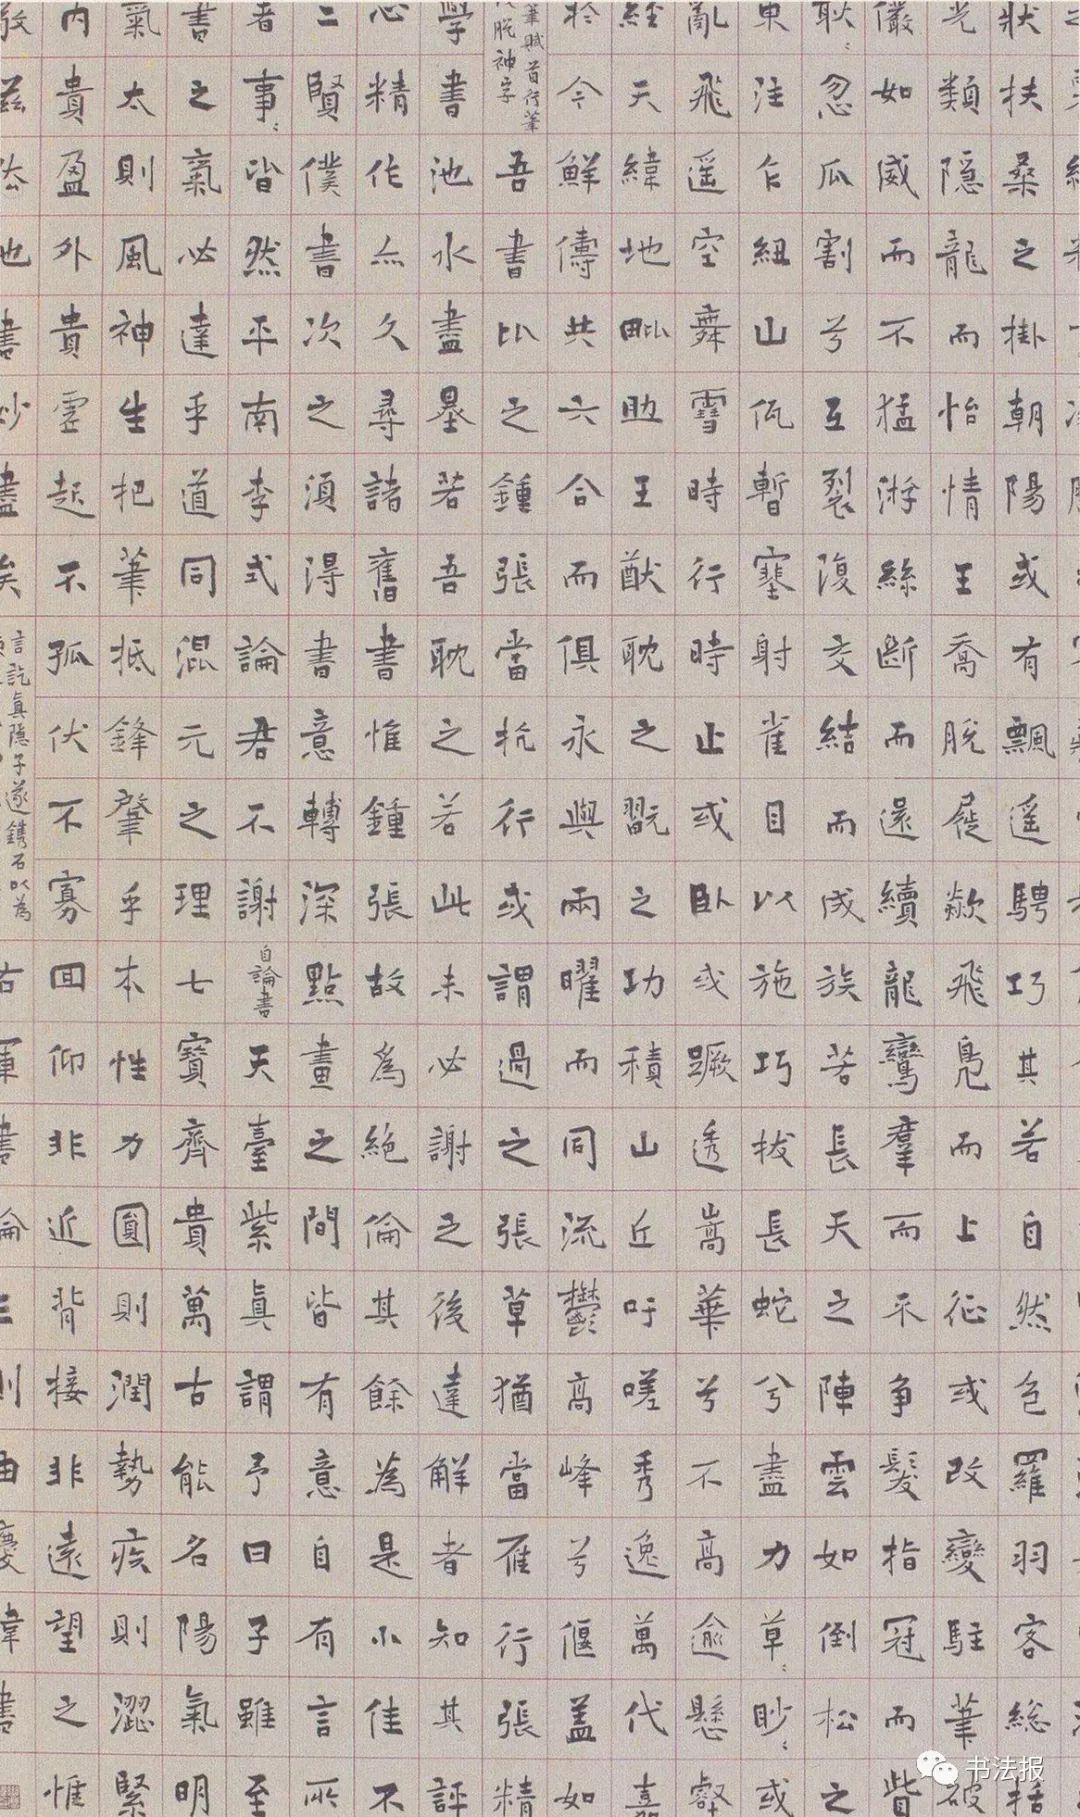 狀扶桑之掛朝陽或有飄遥騁巧其若自然包羅羽客総括
光類隠龍而怡情王喬脱屣歘飛鳧而上征或改變駐筆破
儼如威而不猛游絲斷而還續龍鸞羣而不争髮指冠而皆
耿忽瓜割兮互裂復交結而成族若長天之陣雲如倒松之
東注乍紐山伍暫塞射雀目以施巧拔長蛇兮盡力草眇或
亂飛遥空舞雪時行時止或卧或蹶透嵩華兮不高逾懸壑
經天緯地毗助王猷耽之翫之功積山丘吁嗟秀逸萬代嘉
於今鮮儔共六合而俱永與兩曜而同流鬱高峰兮偃盖如
筆賦首行筆
脱神字
吾書比之鍾張當抗行或謂過之張草猶當雁行張精
學書池水盡墨若吾耽之若此未必謝之後達解者知其評
心精作亦久尋諸舊書惟鍾張故爲絶倫其餘為是小佳不
二賢僕書次之湏得書意轉深點畫之間皆有意自有言所
者事皆然平南李式論君不謝自論書天臺紫真謂予曰子雖至
書之氣必達乎道同混元之理七寳齊貴萬古能名陽氣明
氣太則風神生把筆抵鋒肇乎本性力圓則潤勢疾則澀緊
内貴盈外貴虚起不孤伏不寡回仰非近背接非遠望之惟
敬兹也書妙盡矣
言訖真隱子遂鐫石以為
右軍書論三則
書
书法报